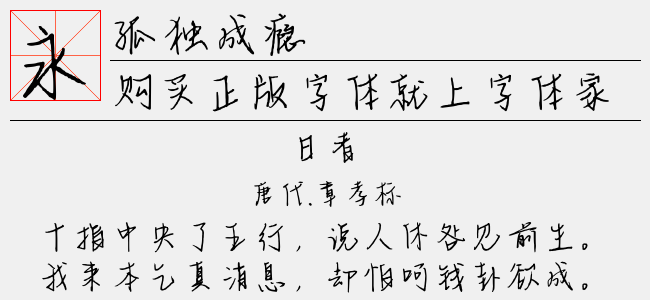 永
孤独成瘾
购买正版字体就上字体家
日者
唐代.章孝标
十指中央了五行，说人休咎见前生。
我来本乞真消息，却怕呵钱卦欲成。